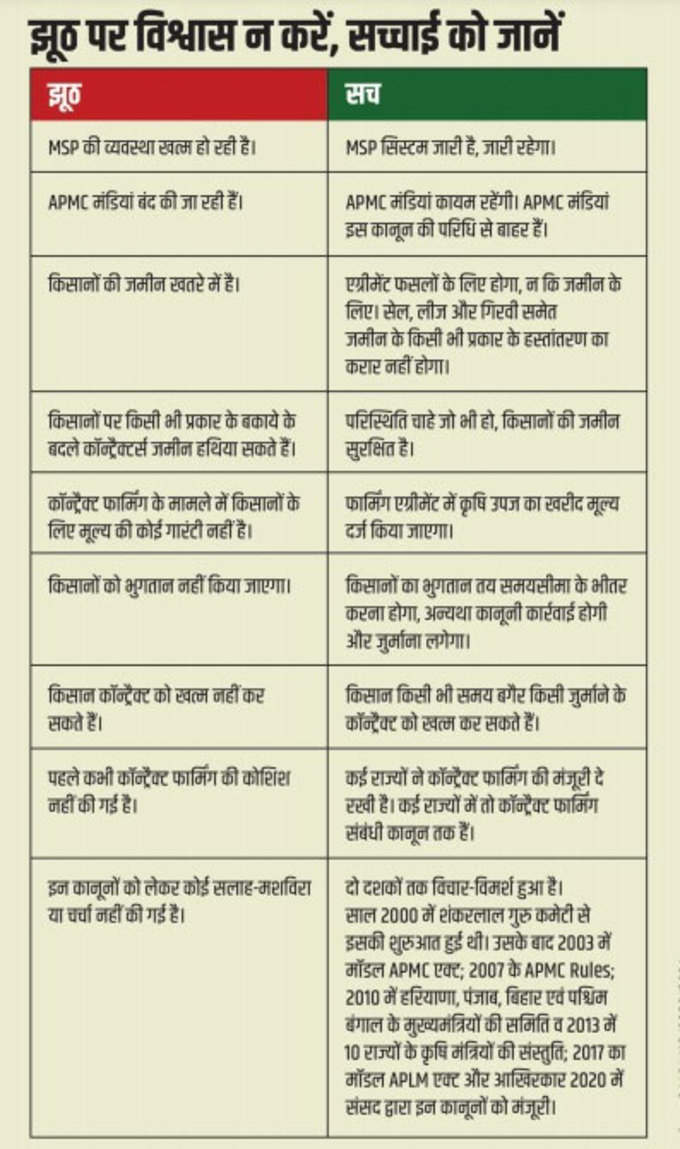 झूठ पर विश्वास न करें, सच्चाई को जानें
झूठ
सच
MSP की व्यवस्था खत्म हो रही है।
MSP सिस्टम जारी है, जारी रहेगा।
APMC मंडियां बंद की जा रही हैं।
APMC मंडियां कायम रहेंगी। APMC मंडियां
इस कानून की परिधि से बाहर हैं।
किसानों की जमीन खतरे में है।
एग्रीमेंट फसलों के लिए होगा, न कि जमीन के
लिए। सेल, लीज और गिरवी समेत
जमीन के किसी भी प्रकार के हस्तांतरण का
करार नहीं होगा।
किसानों पर किसी भी प्रकार के बकाये के
बदले कॉन्ट्रैक्टर्स जमीन हथिया सकते हैं।
परिस्थिति चाहे जो भी हो, किसानों की जमीन
सुरक्षित है।
कॉन्ट्रैक्ट फार्मिंग के मामले में किसानों के
लिए मूल्य की कोई गारंटी नहीं है।
फार्मिंग एग्रीमेंट में कृषि उपज का खरीद मूल्य
दर्ज किया जाएगा।
किसानों को भुगतान नहीं किया जाएगा।
किसानों का भुगतान तय समयसीमा के भीतर
करना होगा, अन्यथा कानूनी कार्रवाई होगी
और जुर्माना लगेगा।
किसान कॉन्ट्रैक्ट को खत्म नहीं कर
सकते हैं।
किसान किसी भी समय बगैर किसी जुर्माने के
कॉन्ट्रैक्ट को खत्म कर सकते हैं।
पहले कभी कॉन्ट्रैक्ट फार्मिंग की कोशिश
नहीं की गई है।
कई राज्यों ने कॉन्ट्रैक्ट फार्मिंग की मंजूरी दे
रखी है। कई राज्यों में तो कॉन्ट्रैक्ट फार्मिंग
संबंधी कानून तक हैं।
इन कानूनों को लेकर कोई सलाह-मशविरा
या चर्चा नहीं की गई है।
दो दशकों तक विचार-विमर्श हुआ है।
साल 2000 में शंकरलाल गुरु कमेटी से
इसकी शुरुआत हुई थी। उसके बाद 2003 में
मॉडल APMC एक्ट; 2007 के APMC Rules;
2010 में हरियाणा, पंजाब, बिहार एवं पश्चिम
बंगाल के मुख्यमंत्रियों की समिति व 2013 में
10 राज्यों के कृषि मंत्रियों की संस्तुति; 2017 का
मॉडल APLM एक्ट और आखिरकार 2020 में
संसद द्वारा इन कानूनों को मंजूरी।